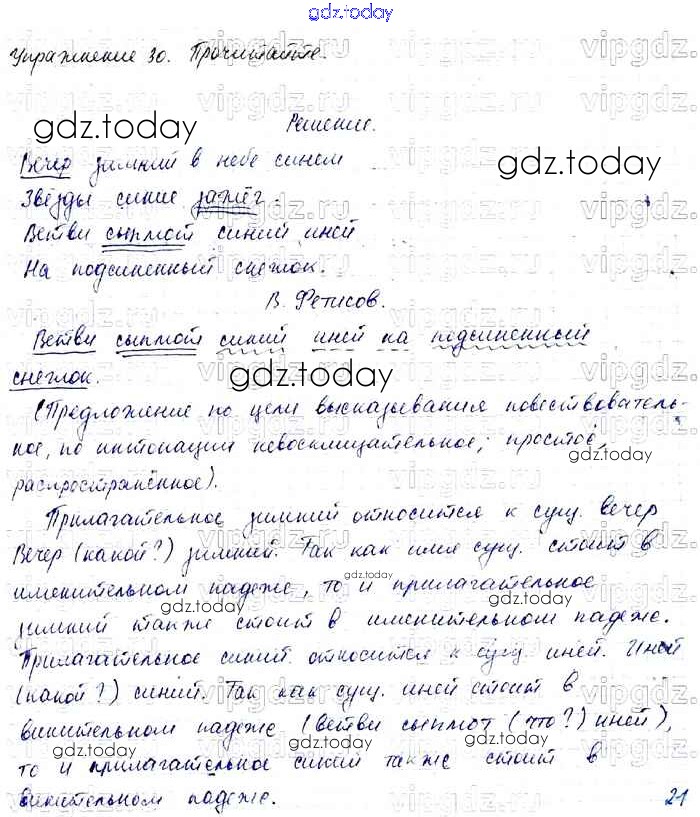 gdz.today
Упражнение 30. Прочитайте.
Решение.
Вечер зимний в небе синем
Звёзды синие зажёг.
Ветви сыплют синий иней
На подсиненный снежок.
В. Фетисов.
Ветви сыплют синий иней на подсиненный
снежок.
(Предложение по цели высказывания повествователь-
ное, по интонации невосклицательное, простое,
распространённое).
Прилагательное зимний относится к сущ. вечер
Вечер (какой?) зимний. Так как имя сущ. стоит в
именительном падеже, то и прилагательное
зимний также стоит в именительном падеже.
Прилагательное синий относится к сущ. иней. Иней
(какой?) синий. Так как сущ. иней стоит в
винительном падеже (ветви сыплют (что?) иней),
то и прилагательное синий также стоит в
винительном падеже.
21